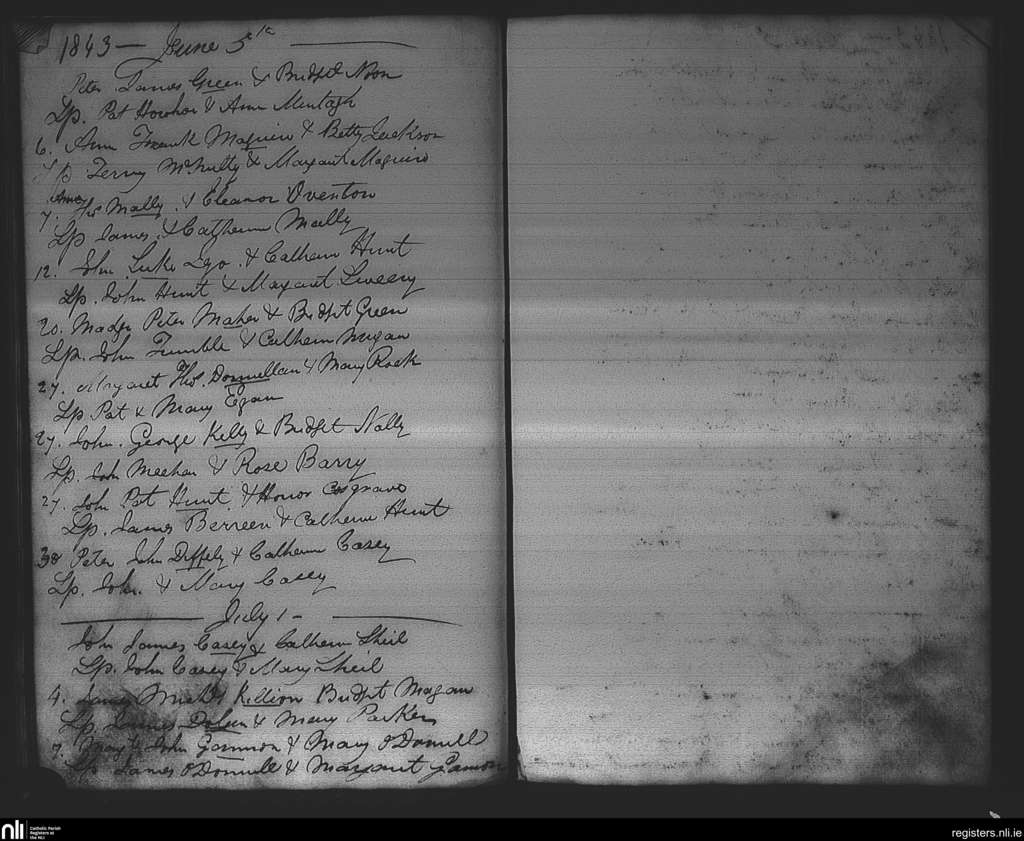 1843 — June 5th
Peter James Green & Bridget Noon
Sp. Pat & Ann Murtagh
6. Ann Frank Maguire & Betty Jackson
Sp Terry McNulty & Margaret Maguire
7. Anne Thos Mally & Eleanor Overton
Sp James & Catherin Mally
12. John Luke Ego & Catherin Hunt
Sp. John Hunt & Margaret Sweeny
20. Madge Peter Maher & Bridget Green
Sp. John Trimble & Catherin Magan
27. Margaret Thos. Donnellan & Mary Rock
Sp Pat & Mary Egan
27. John. George Kelly & Bridget Nally
Sp. John Meehan & Rose Barry
27. John Pat Hunt & Honor Cosgrave
Sp. James Berreen & Catherin Hunt
Peter John Diffely & Catherin Casey
Sp. John & Mary Casey
July 1 —
John James Casey & Catherin Sheil
Sp. John Casey & Mary Sheil
4. James Michl Killion Bridget Magan
Sp. James Dolan & Mary Parker
7. Margt John Gannon & Mary O'Donnell
Sp James O'Donnell & Margaret Gannon
nli Catholic Parish
Registers at
the NLI
registers.nli.ie